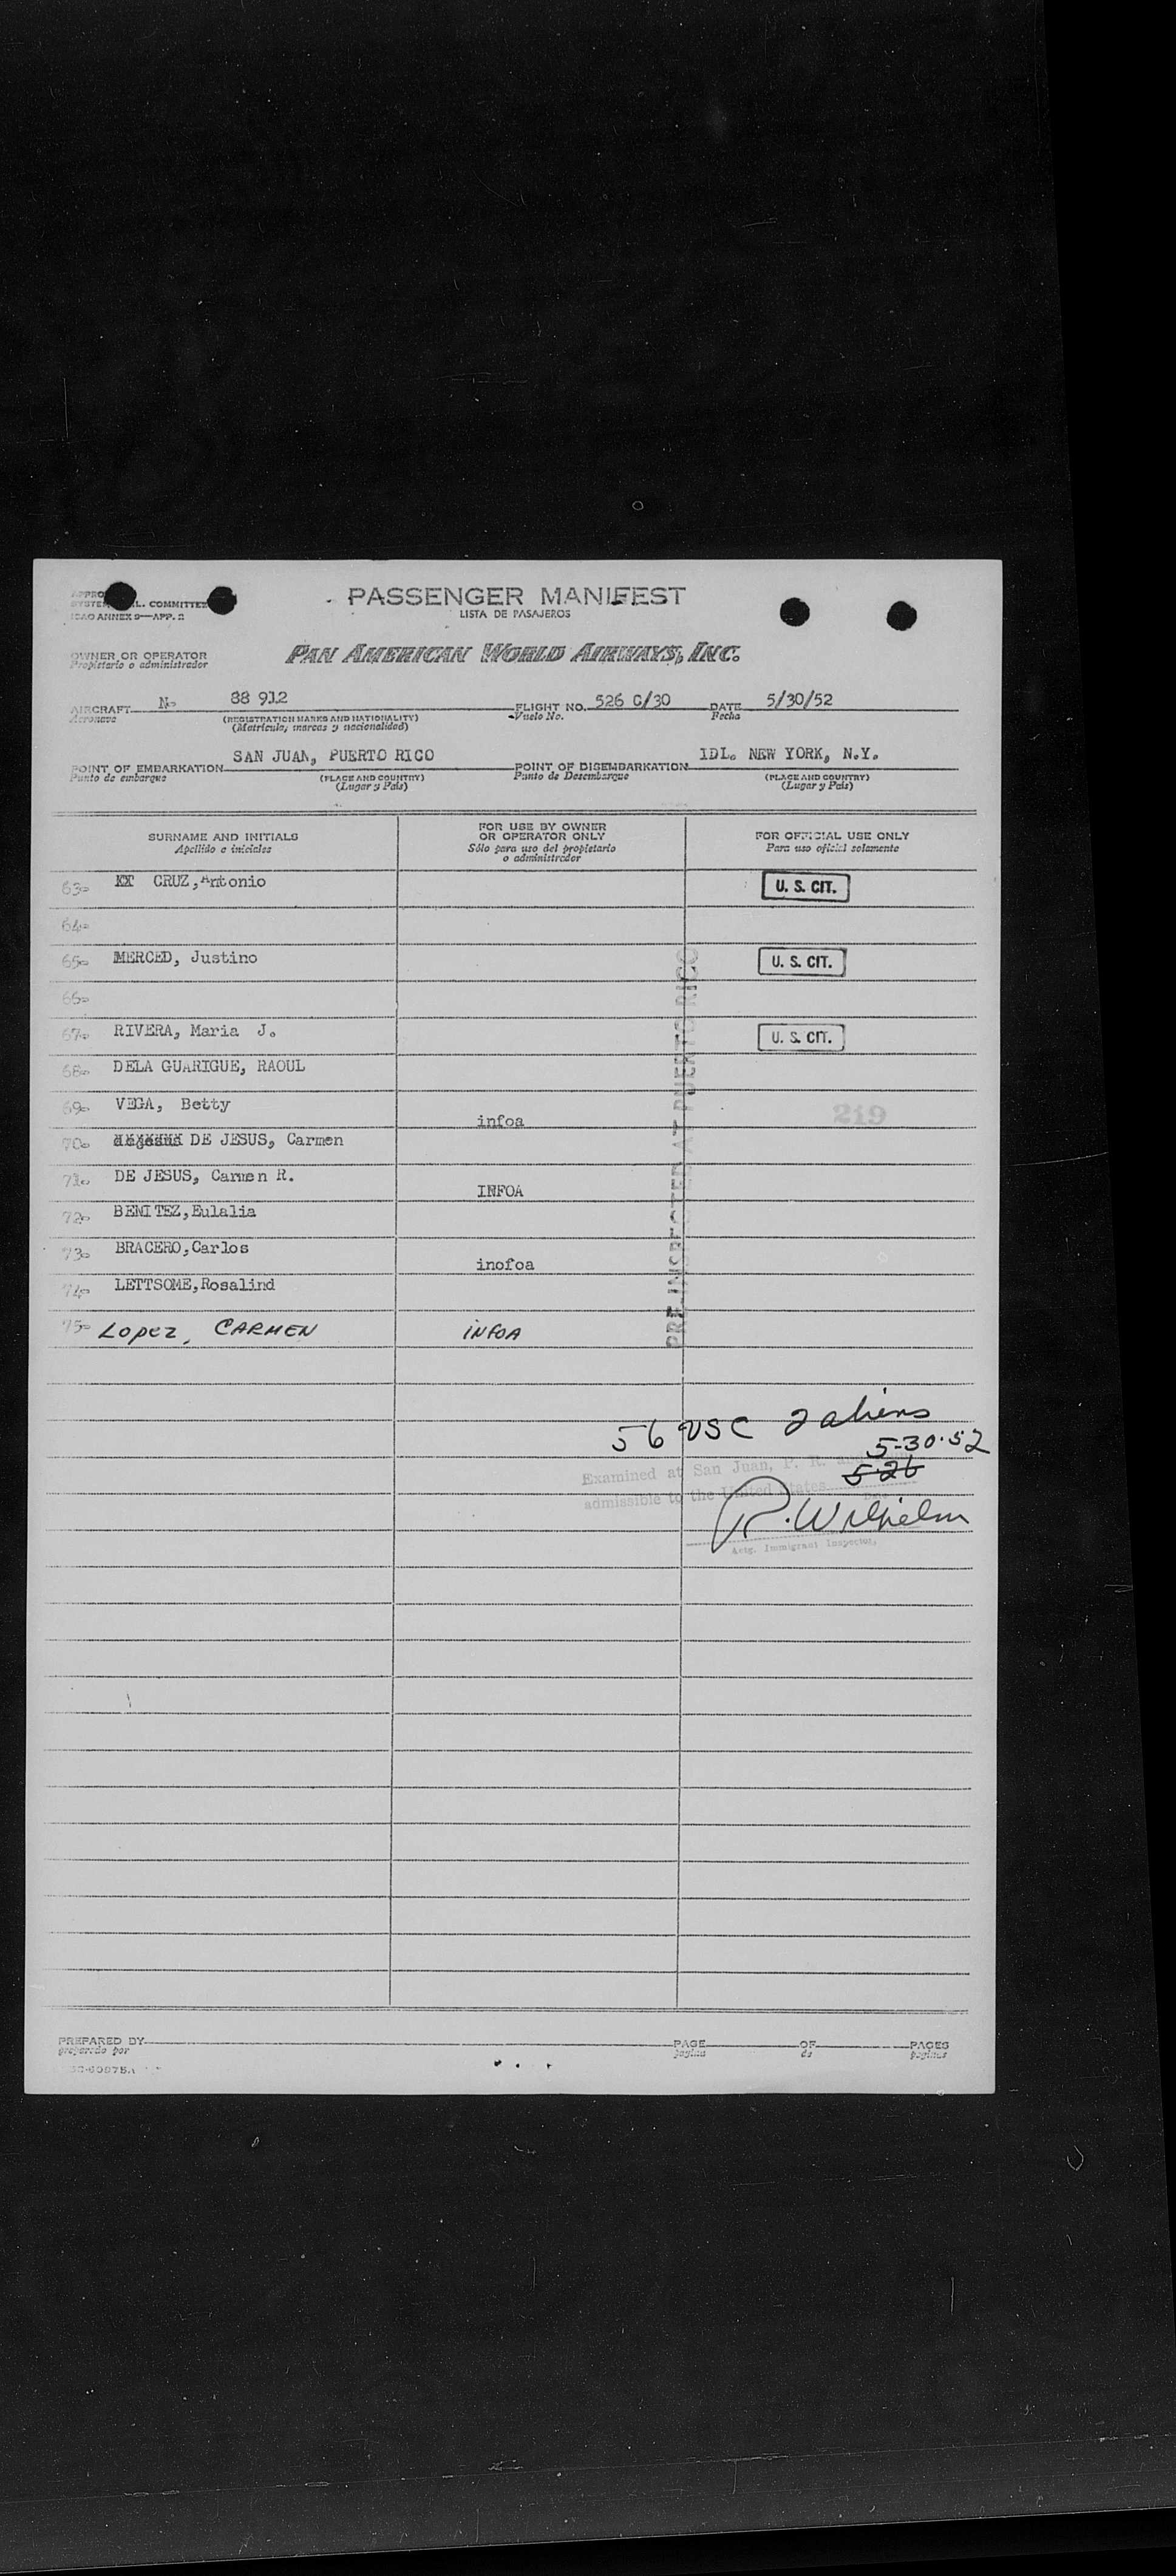 PASSENGER MANIFEST
LISTA DE PASAJEROS
L. COMMITTEE
ICAO ANNEX 9—APP. 2
OWNER OR OPERATOR
Propietario o administrador
PAN AMERICAN WORLD AIRWAYS, INC.
AIRCRAFT No 88 912 FLIGHT NO. 526 C/30 DATE 5/30/52
Aeronave (REGISTRATION MARKS AND NATIONALITY) Vuelo No. Fecha
(Matrícula, marcas y nacionalidad)
POINT OF EMBARKATION SAN JUAN, PUERTO RICO POINT OF DISEMBARKATION IDL. NEW YORK, N.Y.
Punto de embarque (PLACE AND COUNTRY) Punto de Desembarque (PLACE AND COUNTRY)
(Lugar y País) (Lugar y País)
SURNAME AND INITIALS
Apellido e iniciales
FOR USE BY OWNER
OR OPERATOR ONLY
Sólo para uso del propietario
o administrador
FOR OFFICIAL USE ONLY
Para uso oficial solamente
63- CRUZ, Antonio U. S. CIT.
64-
65- MERCED, Justino U. S. CIT.
66-
67- RIVERA, Maria J. U. S. CIT.
68- DELA GUARIGUE, RAOUL
69- VEGA, Betty infoa 219
70- DE JESUS, Carmen
71- DE JESUS, Carmen R. INFOA
72- BENITEZ, Eulalia
73- BRACERO, Carlos inofoa
74- LETTSOME, Rosalind
75- Lopez, CARMEN INFOA
PRE-INSPECTED AT PUERTO RICO
56 USC 2 aliens
5-30-52
5-26
Examined at San Juan, P. R.
admissible to the United States
R. Wilhelm
Actg. Immigrant Inspector.
PREPARED BY PAGE OF PAGES
preparado por pagina de paginas